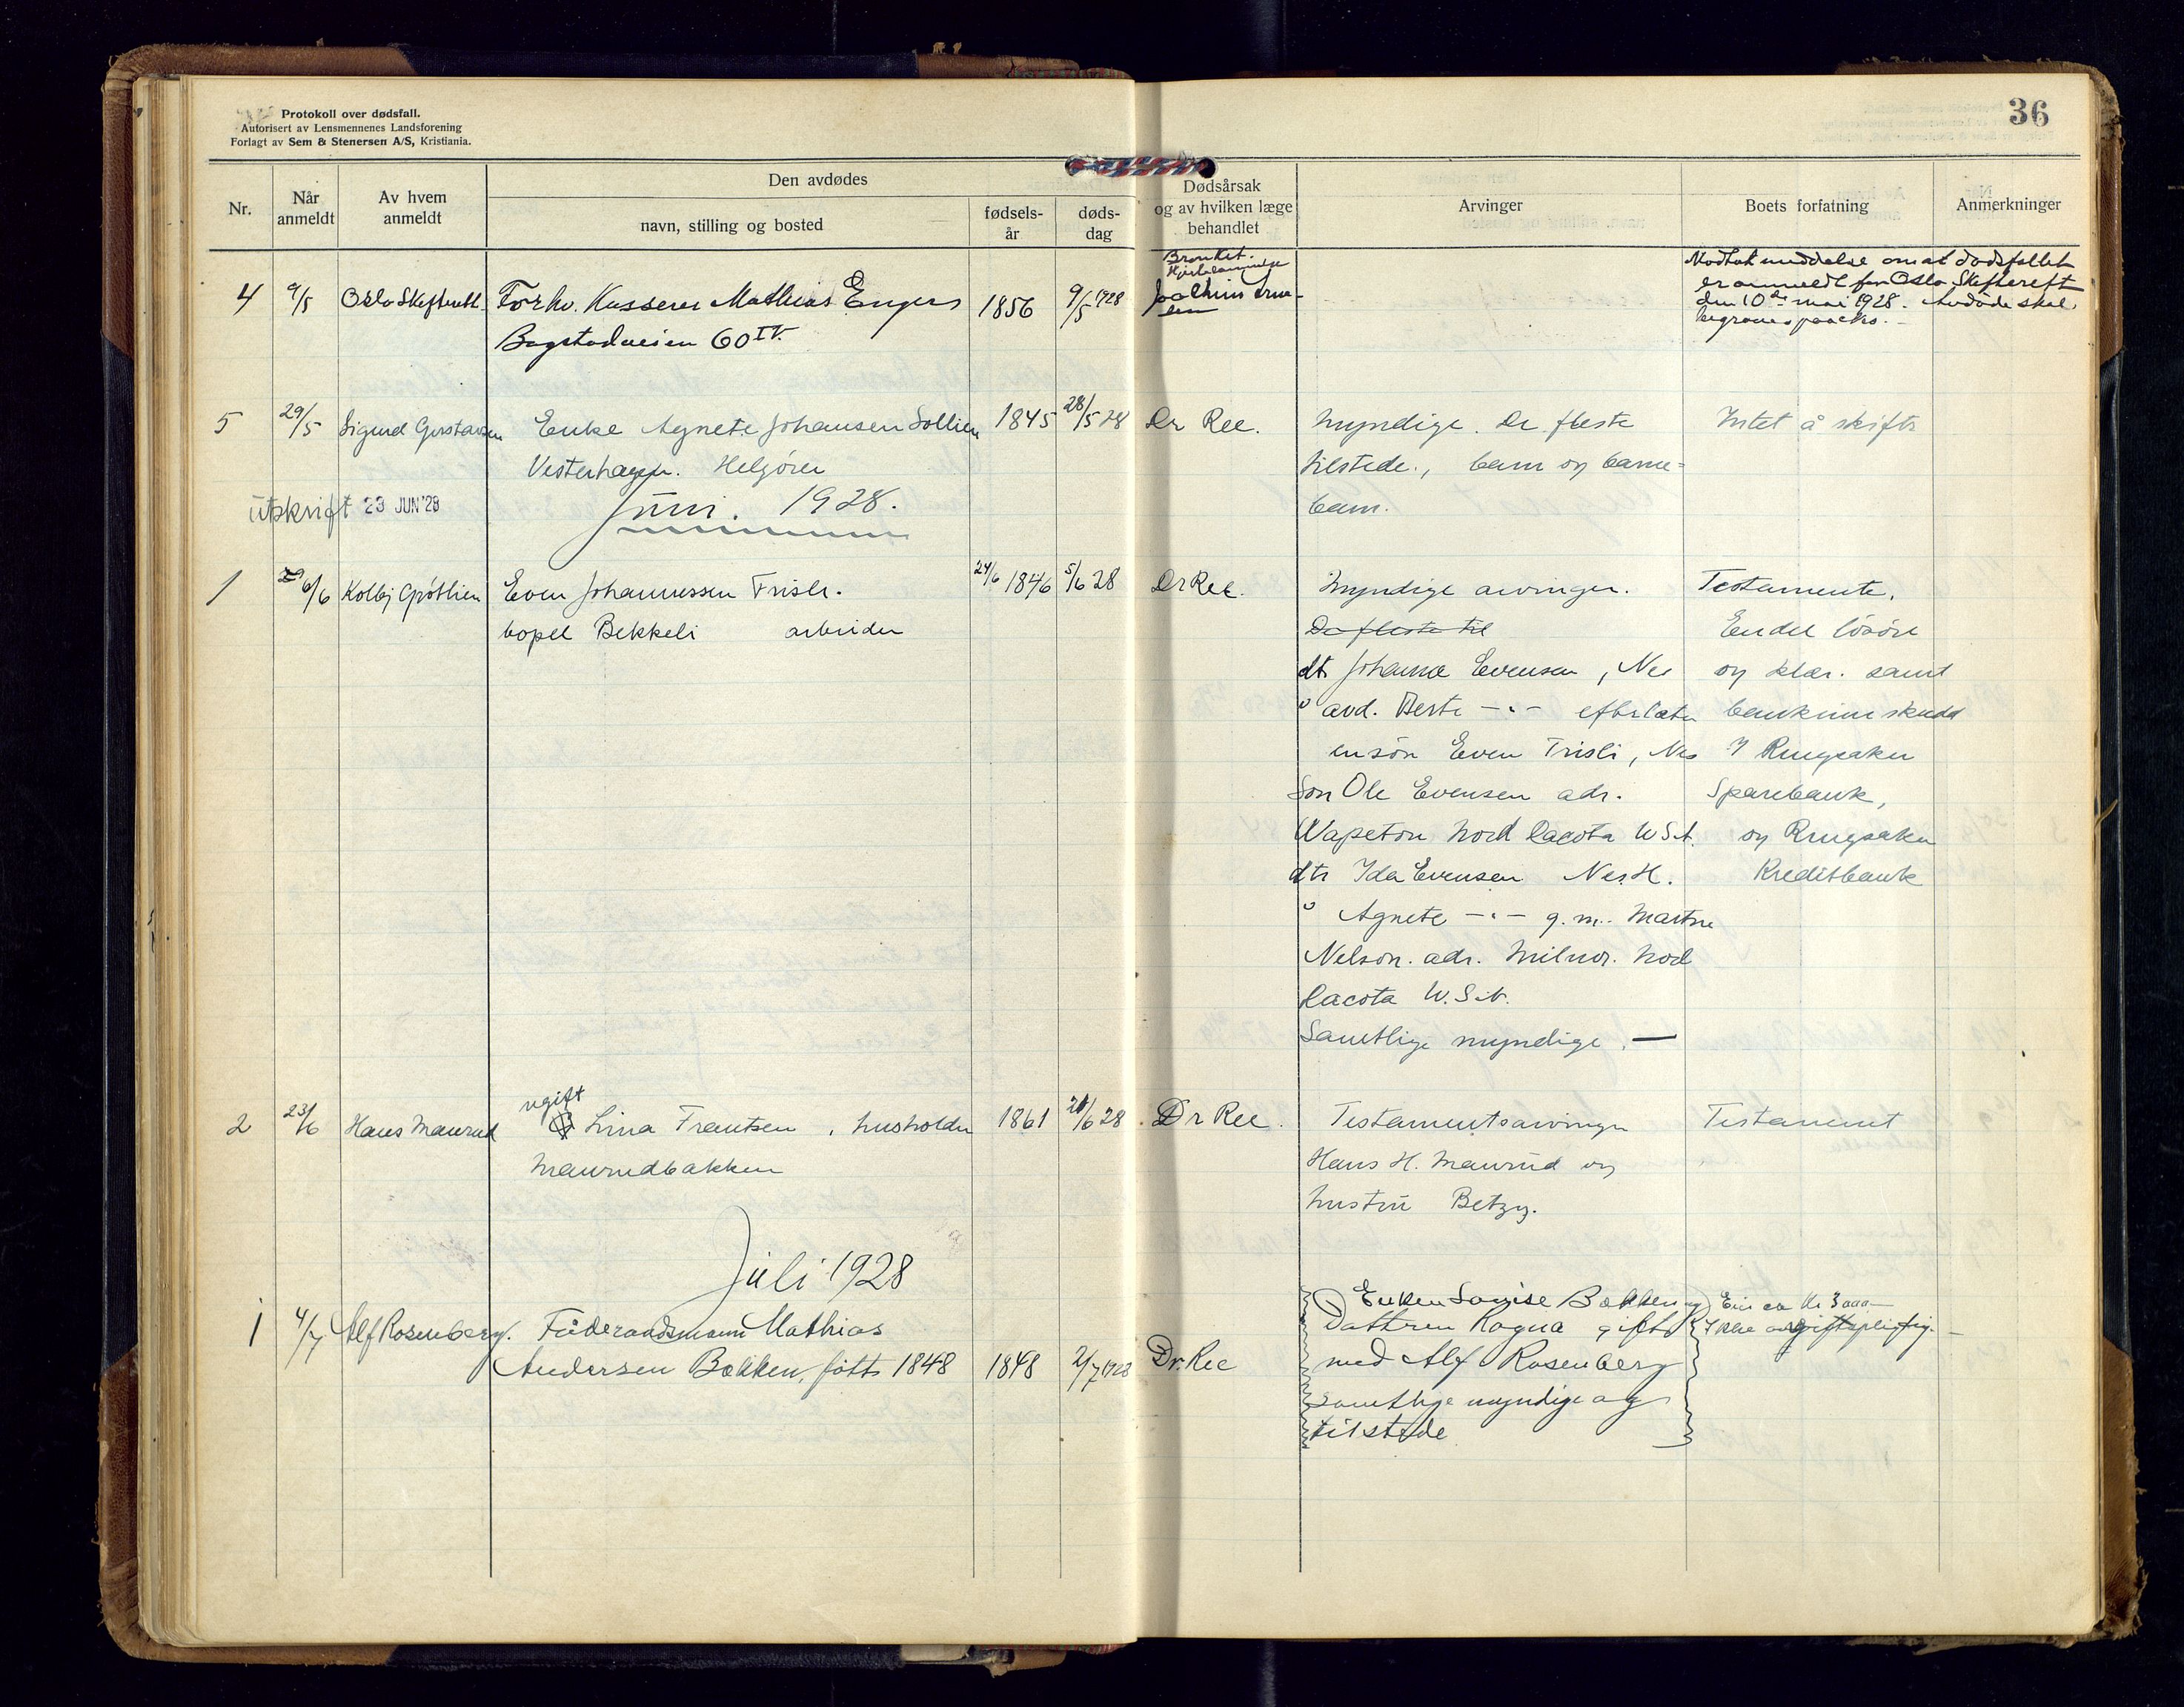 36
Protokoll over dødsfall.
Autorisert av Lensmennenes Landsforening
Forlagt av Sem & Stenersen A/S, Kristiania.
Nr.
Når anmeldt
Av hvem anmeldt
Den avdødes
navn, stilling og bosted
fødsels-år
døds-dag
Dødsårsak og av hvilken læge behandlet
Arvinger
Boets forfatning
Anmerkninger
4 9/5 Oslo Skifterett Forhv. Kasserer Mathias Engers 1856 9/5 1928
Bogstadveien 60 IV.
Bronkit.
Mottat meddelse om at dødsfallet
er anmeldt for Oslo Skifterett
den 10de mai 1928. Avdøde skal
begraves paa
5 29/5 Sigurd Gustavsen Enke Agnete Johansen Sollien 1845 28/5 28 Dr Ree. Myndige. De fleste Intet å skifte
Vesterhagen. Helgøien tilstede., barn og barne-
barn.
utskrift 23 JUN '28
Juni. 1928.
1 6/6 Kolbj Grøtlien Even Johannessen Frisli. 24/6 1846 5/6 28 Dr Ree. Myndige arvinger. Testamente.
bopel Bekkeli arbeider De fleste til Endel lösöre
dtr Johanna Evensen, Nes og klær. samt
" avd. Berte -"- efterlater bankinnskudd
en sön Even Frisli, Nes I Ringsaker
Sön Ole Evensen adr. Sparebank,
Wapeton Nord Dacota U S A. og Ringsaker
dtr Ida Evensen Nes H. Kreditbank
" Agnete -"- g. m. Martin
Nelson. adr. Milnor. Nod
Dacota U. S. A.
Samtlige myndige. —
2 23/6 Hans Maurud ugift Lina Frantsen, husholder 1861 21/6 28. Dr Ree. Testamentsarvinger Testament
Maurudbakken Hans H. Maurud og
hustru Betzy.
Juli 1928
1 4/7 Alf Rosenberg. Föderaadsmann Mathias
Andersen Bakken, fött 1848 1848 2/7 1928 Dr. Ree
Enken Lovise Bakken og
Dattren Ragna gift
med Alf Rosenberg
samtlige myndige og
tilstede
Eie ca kr 3000—
Ikke avgiftspligtig.—